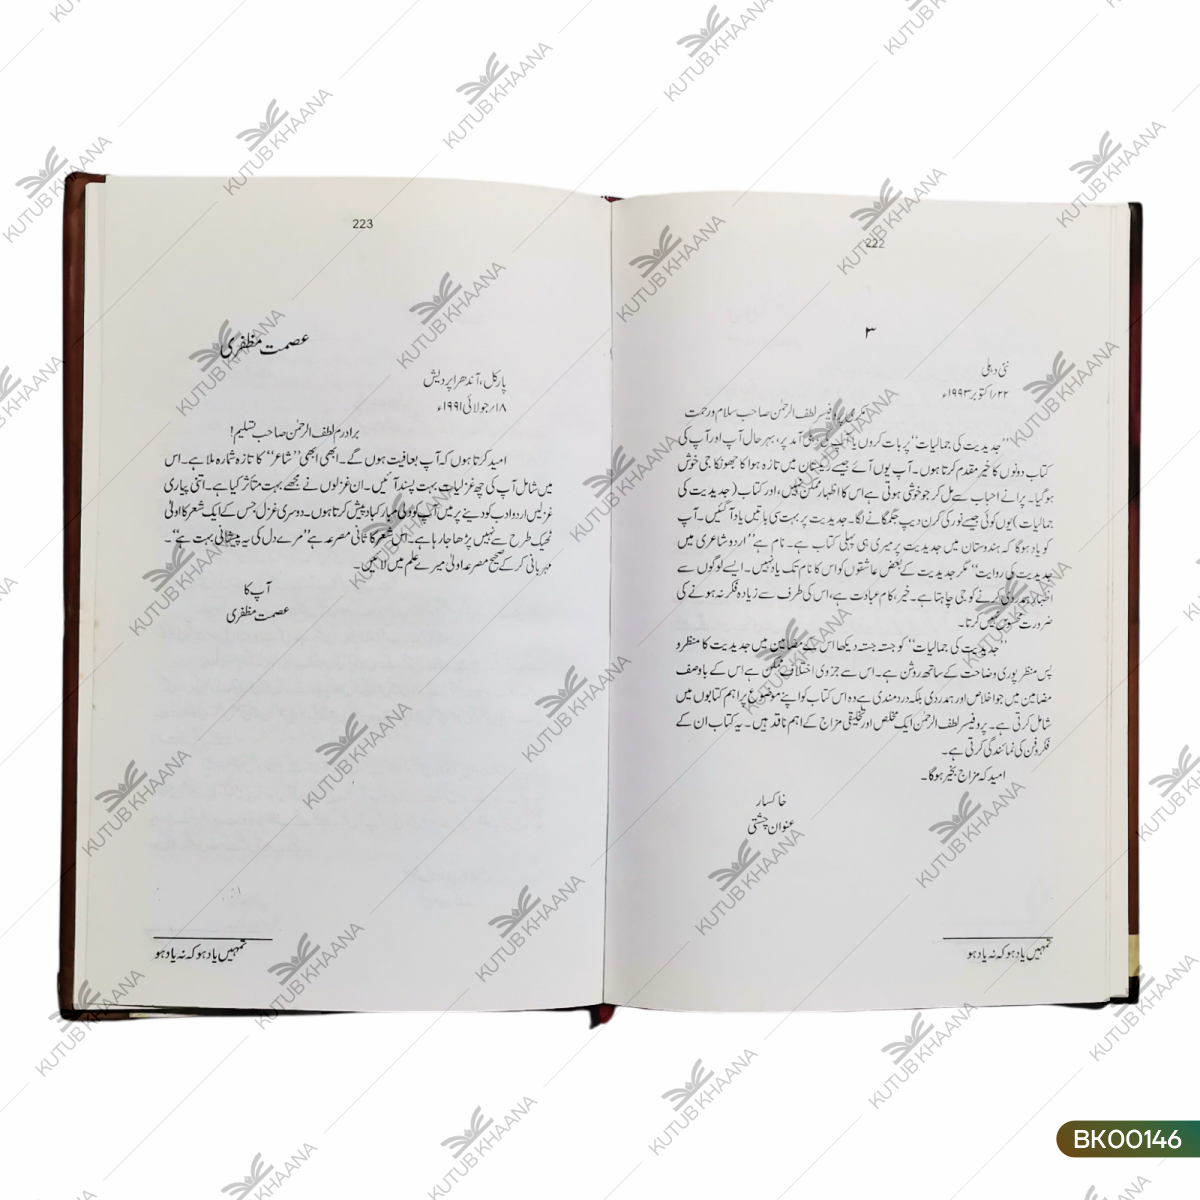 222
۳
نئی دہلی
۲۲/اکتوبر ۱۹۹۳ء
مکرمی پروفیسر لطف الرحمٰن صاحب سلام و رحمت
”جدیدیت کی جمالیات“ پر بات کروں یا آپ کی دہلی آمد پر، بہر حال آپ اور آپ کی
کتاب دونوں کا خیر مقدم کرتا ہوں۔ آپ یوں آئے جیسے ریگستان میں تازہ ہوا کا جھونکا جی خوش
ہو گیا۔ پرانے احباب سے مل کر جو خوشی ہوتی ہے اس کا اظہار ممکن نہیں، اور کتاب (جدیدیت کی
جمالیات) یوں کوئی جیسے نور کی کرن دیپ جگمگانے لگا۔ جدیدیت پر بہت سی باتیں یاد آ گئیں۔ آپ
کو یاد ہوگا کہ ہندوستان میں جدیدیت پر میری ہی پہلی کتاب ہے۔ نام ہے ”اردو شاعری میں
جدیدیت کی روایت“ مگر جدیدیت کے بعض عاشقوں کو اس کا نام تک یاد نہیں۔ ایسے لوگوں سے
اظہار ہمدردی کرنے کو جی چاہتا ہے۔ خیر، کام عبادت ہے، اس کی طرف سے زیادہ فکر نہ ہونے کی
ضرورت محسوس نہیں کرتا۔
”جدیدیت کی جمالیات“ کو جستہ جستہ دیکھا اس کے مضامین میں جدیدیت کا منظر و
پس منظر پوری وضاحت کے ساتھ روشن ہے۔ اس سے جزوی اختلاف ممکن ہے اس کے باوصف
مضامین میں جو اخلاص اور ہمدردی بلکہ دردمندی ہے وہ اس کتاب کو اپنے موضوع پر اہم کتابوں میں
شامل کرتی ہے۔ پروفیسر لطف الرحمٰن ایک مخلص اور تخلیقی مزاج کے اہم ناقد ہیں۔ یہ کتاب ان کے
فکر و فن کی نمائندگی کرتی ہے۔
امید کہ مزاج بخیر ہوگا۔
خاکسار
عنوان چشتی
تمہیں یاد ہو کہ نہ یاد ہو
223
عصمت مظفری
پارکل، آندھرا پردیش
۱۸/جولائی ۱۹۹۱ء
برادرم لطف الرحمٰن صاحب تسلیم!
امید کرتا ہوں کہ آپ بعافیت ہوں گے۔ ابھی ابھی ”شاعر“ کا تازہ شمارہ ملا ہے۔ اس
میں شامل آپ کی چھ غزلیات بہت پسند آئیں۔ ان غزلوں نے مجھے بہت متاثر کیا ہے۔ اتنی پیاری
غزلیں اردو ادب کو دینے پر میں آپ کو دلی مبارکباد پیش کرتا ہوں۔ دوسری غزل جس کے ایک شعر کا اولیٰ
ٹھیک طرح سے نہیں پڑھا جا رہا ہے۔ اس شعر کا ثانی مصرعہ ہے ”مرے دل کی یہ پیشانی بہت ہے“۔
مہربانی کر کے صحیح مصرعہ اولیٰ میرے علم میں لائیں۔
آپ کا
عصمت مظفری
تمہیں یاد ہو کہ نہ یاد ہو
KUTUB KHAANA
BK00146